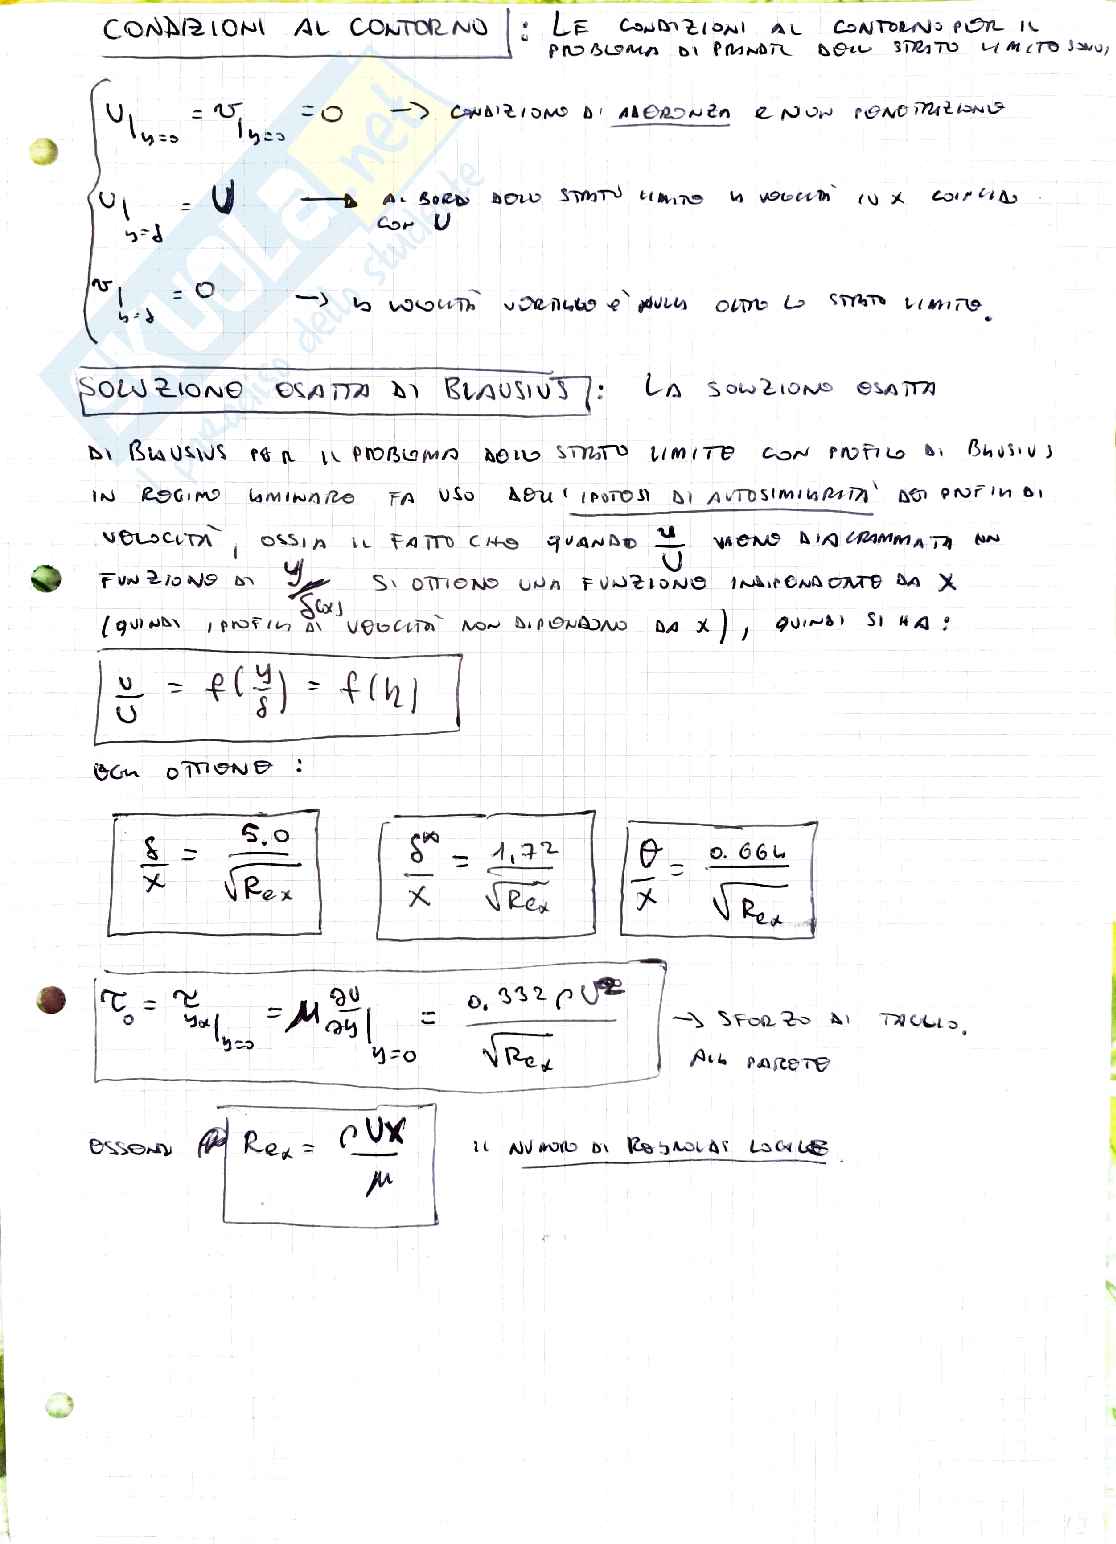 CONDIZIONI AL CONTORNO : LE CONDIZIONI AL CONTORNO PER IL
PROBLEMA DI PRANDTL DELLO STRATO LIMITE SONO,
u|y=0 = v|y=0 = 0 → CONDIZIONE DI ADERENZA E NON PENETRAZIONE
u|y=δ = U → AL BORDO DELLO STRATO LIMITE LA VELOCITÀ IN X COINCIDE
CON U
v|y=δ = 0 → LA VELOCITÀ VERTICALE È NULLA OLTRE LO STRATO LIMITE.
SOLUZIONE ESATTA DI BLAUSIUS : LA SOLUZIONE ESATTA
DI BLAUSIUS PER IL PROBLEMA DELLO STRATO LIMITE CON PROFILO DI BLAUSIUS
IN REGIME LAMINARE FA USO DELL'IPOTESI DI AUTOSIMILARITÀ DEI PROFILI DI
VELOCITÀ, OSSIA IL FATTO CHE QUANDO u/U VIENE DIAGRAMMATA IN
FUNZIONE DI y/δ(x) SI OTTIENE UNA FUNZIONE INDIPENDENTE DA X
(QUINDI I PROFILI DI VELOCITÀ NON DIPENDONO DA X), QUINDI SI HA:
u/U = f(y/δ) = f(η)
EGLI OTTIENE :
δ/x = 5.0/√Rex δ*/x = 1,72/√Rex θ/x = 0.664/√Rex
τ0 = τyx|y=0 = μ ∂u/∂y|y=0 = 0.332 ρU²/√Rex → SFORZO DI TAGLIO.
ALLA PARETE
ESSENDO Rex = ρUX/μ IL NUMERO DI REYNOLDS LOCALE.
SKUOLA.net
il paradiso dello studente